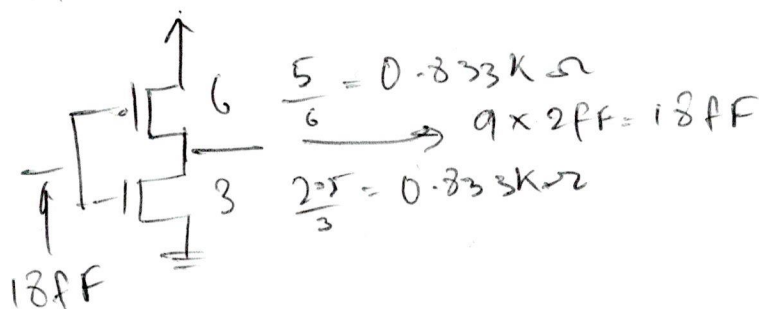 6 5/6 = 0.833KΩ
9 × 2fF = 18fF
3 2.5/3 = 0.833KΩ
18fF